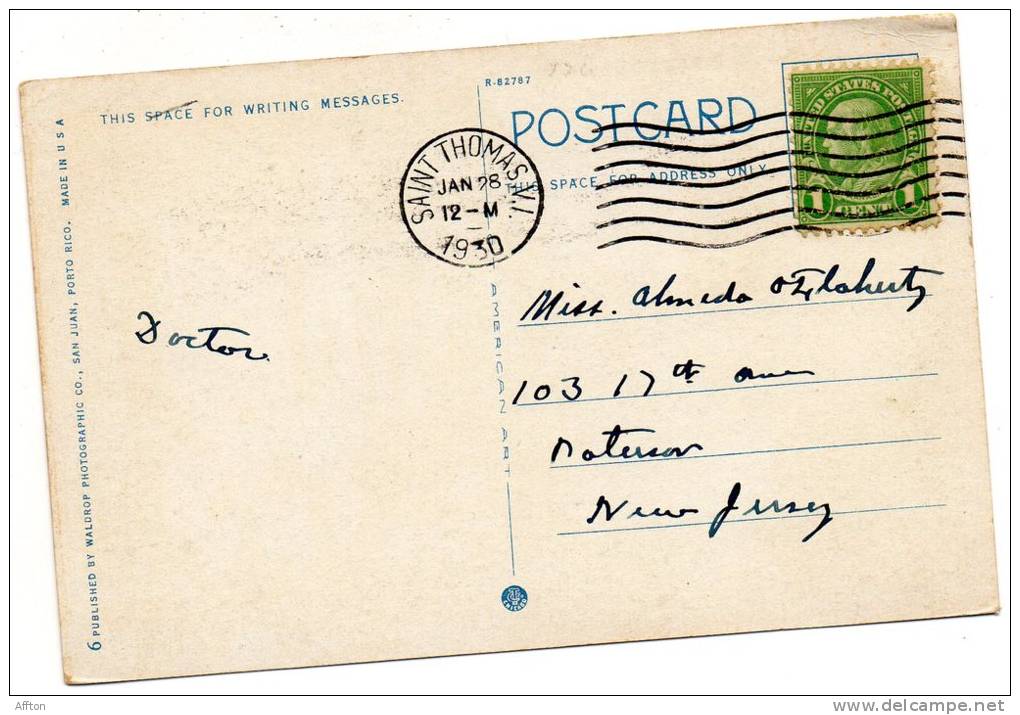 THIS SPACE FOR WRITING MESSAGES.
R-82787
POST CARD
THIS SPACE FOR ADDRESS ONLY
UNITED STATES POSTAGE
1 CENT 1
SAINT THOMAS, V.I.
JAN 28
12-M
1930
Doctor
Miss. Almeda O'Flaherty
103 17th ave
Paterson
New Jersey
AMERICAN ART
6 PUBLISHED BY WALDROP PHOTOGRAPHIC CO., SAN JUAN, PORTO RICO. MADE IN USA
Affton
delcampe.net